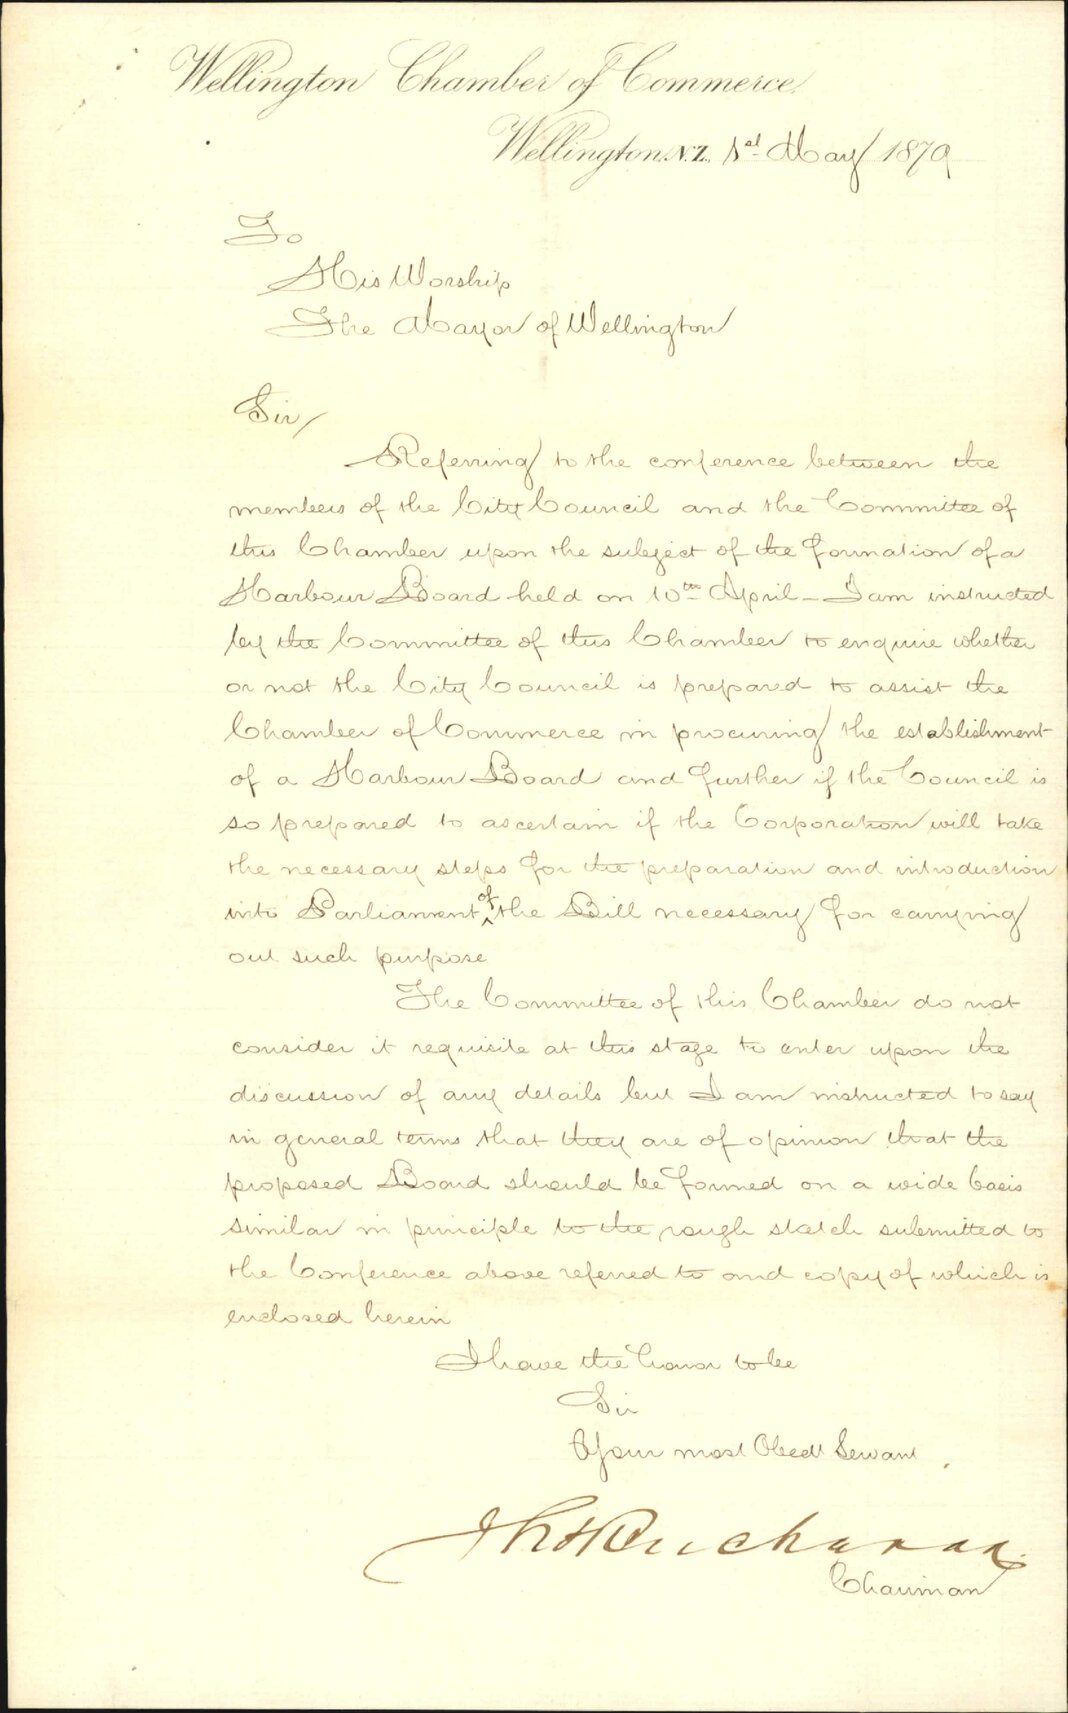 Wellington Chamber of Commerce.
Wellington, N.Z., 1st May 1879
To
His Worship
The Mayor of Wellington
Sir/
Referring to the conference between the
members of the City Council and the Committee of
this Chamber upon the subject of the formation of a
Harbour Board held on 10th April – I am instructed
by the Committee of this Chamber to enquire whether
or not the City Council is prepared to assist the
Chamber of Commerce in procuring the establishment
of a Harbour Board and further if the Council is
so prepared to ascertain if the Corporation will take
the necessary steps for the preparation and introduction
into Parliament of the Bill necessary for carrying
out such purpose
The Committee of this Chamber do not
consider it requisite at this stage to enter upon the
discussion of any details but I am instructed to say
in general terms that they are of opinion that the
proposed Board should be formed on a wide basis
similar in principle to the rough sketch submitted to
the Conference above referred to and copy of which is
enclosed herein
I have the honor to be
Sir
Your most Obedt Servant
Buchanan
Chairman